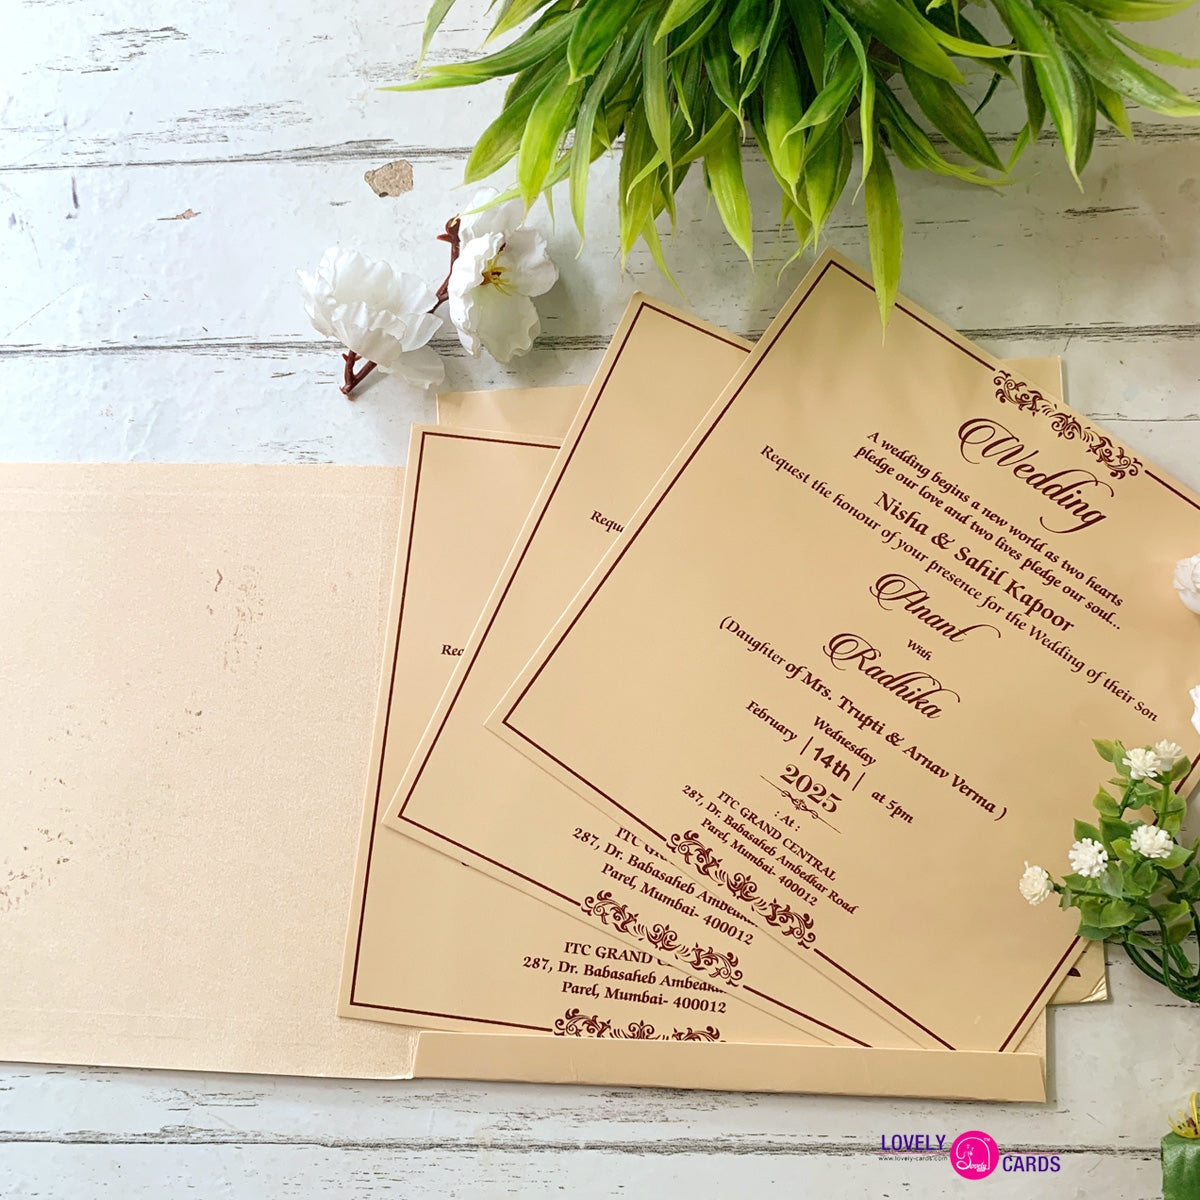 Wedding
A wedding begins a new world as two hearts
pledge our love and two lives pledge our soul...
Nisha & Sahil Kapoor
Request the honour of your presence for the Wedding of their Son
Anant
With
Radhika
(Daughter of Mrs. Trupti & Arnav Verma )
Wednesday
February | 14th | at 5pm
2025
: At :
ITC GRAND CENTRAL
287, Dr. Babasaheb Ambedkar Road
Parel, Mumbai- 400012
Requ
ITC GRA
287, Dr. Babasaheb Ambedk
Parel, Mumbai- 400012
Req
ITC GRAND C
287, Dr. Babasaheb Ambedka
Parel, Mumbai- 400012
LOVELY
www.lovely-cards.com
Lovely
CARDS